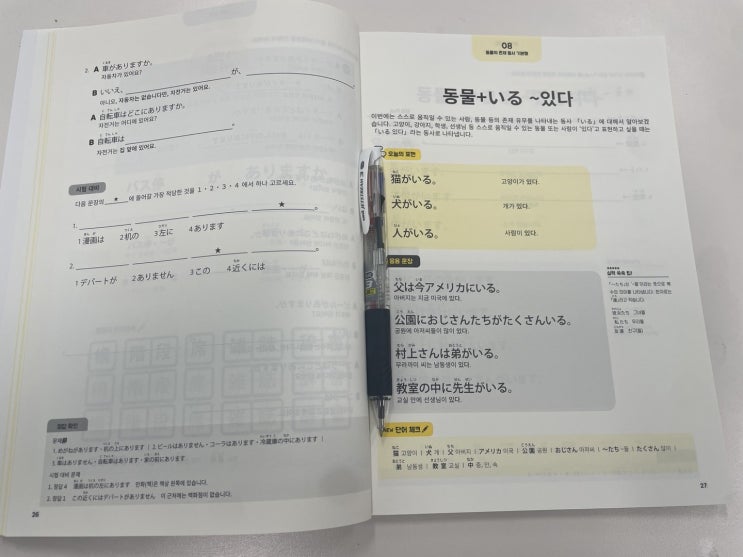 2. A 車がありますか。
자동차가 있어요?
B いいえ、 が、 。
아니요, 자동차는 없습니다만, 자전거는 있어요.
A 自転車はどこにありますか。
자전거는 어디에 있어요?
B 自転車は 。
자전거는 집 앞에 있어요.
시험 대비
다음 문장의 ★ 에 들어갈 가장 적당한 것을 1・2・3・4 에서 하나 고르세요.
1. ★ 。
1 漫画は 2 机の 3 左に 4 あります
2. ★ 。
1 デパートが 2 ありません 3 この 4 近くには
정답 확인
1. めがねがあります・机の上にあります | 2. ビールはありません・コーラはあります・冷蔵庫の中にあります |
3. 車はありません・自転車はあります・家の前にあります
시험 대비 문제
1. 정답 4 漫画は机の左にあります 만화(책)은 책상 왼쪽에 있습니다.
2. 정답 1 この近くにはデパートがありません 이 근처에는 백화점이 없습니다.
26
08
동물의 존재 동사 기본형
동물+いる ~있다
이번에는 스스로 움직일 수 있는 사람, 동물 등의 존재 유무를 나타내는 동사 「いる」에 대해서 알아보겠
습니다. 고양이, 강아지, 학생, 선생님 등 스스로 움직일 수 있는 동물 또는 사람이 '있다'고 표현하고 싶을 때는
「いる 있다」라는 동사로 나타냅니다.
오늘의 표현
猫がいる。 고양이가 있다.
犬がいる。 개가 있다.
人がいる。 사람이 있다.
응용 문장
父は今アメリカにいる。
아버지는 지금 미국에 있다.
公園におじさんたちがたくさんいる。
공원에 아저씨들이 많이 있다.
村上さんは弟がいる。
무라카미 씨는 남동생이 있다.
教室の中に先生がいる。
교실 안에 선생님이 있다.
실력 쑥쑥 팁!
彼女たち 그녀들
私たち 우리들
友達 친구(들)
NEW 단어 체크
猫 고양이 | 犬 개 | 父 아버지 | アメリカ 미국 | 公園 공원 | おじさん 아저씨 | ~たち ~들 | たくさん 많이 |
弟 남동생 | 教室 교실 | 中 중, 안, 속
27